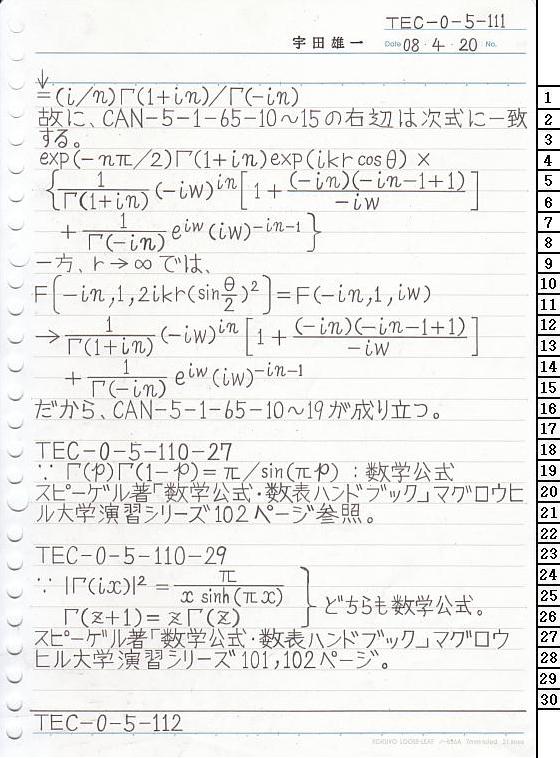 TEC-0-5-111
宇田雄一 Date 08・4・20 No.
↓
=(i/n)Γ(1+in)/Γ(-in)
故に、CAN-5-1-65-10~15の右辺は次式に一致
する。
exp(-nπ/2)Γ(1+in)exp(ikr cosθ)×
{1/Γ(1+in) (-iw)^in [1+(-in)(-in-1+1)/-iw]
+1/Γ(-in) e^iw (iw)^-in-1}
一方、r→∞では、
F[-in,1,2ikr(sin θ/2)^2]=F(-in,1,iw)
→1/Γ(1+in) (-iw)^in [1+(-in)(-in-1+1)/-iw]
+1/Γ(-in) e^iw (iw)^-in-1
だから、CAN-5-1-65-10~19が成り立つ。
TEC-0-5-110-27
∵ Γ(p)Γ(1-p)=π/sin(πp) :数学公式
スピーゲル著「数学公式・数表ハンドブック」マグロウヒ
ル大学演習シリーズ102ページ参照。
TEC-0-5-110-29
∵ |Γ(ix)|^2=π/x sinh(πx)
Γ(z+1)=zΓ(z) } どちらも数学公式。
スピーゲル著「数学公式・数表ハンドブック」マグロウ
ヒル大学演習シリーズ101,102ページ。
TEC-0-5-112
KOKUYO LOOSE-LEAF ノ-836A 7mm ruled 31 lines
1
2
3
4
5
6
7
8
9
10
11
12
13
14
15
16
17
18
19
20
21
22
23
24
25
26
27
28
29
30